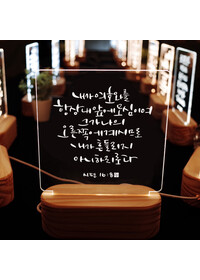 내가 여호와를
항상 내 앞에 모심이여
그가 나의
오른쪽에 계시므로
내가 흔들리지
아니하리로다
시편 16:8